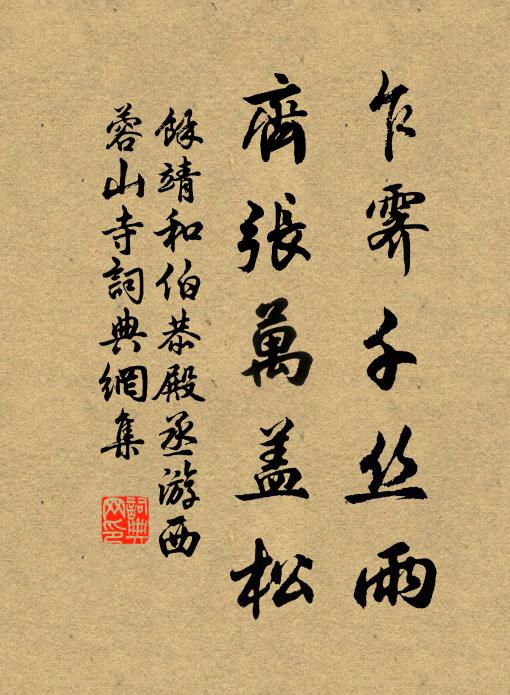 乍霽千丝雨
齊張萬盖松
餘靖和伯恭殿丞游西
蓉山寺詞典網集
詞典
网印